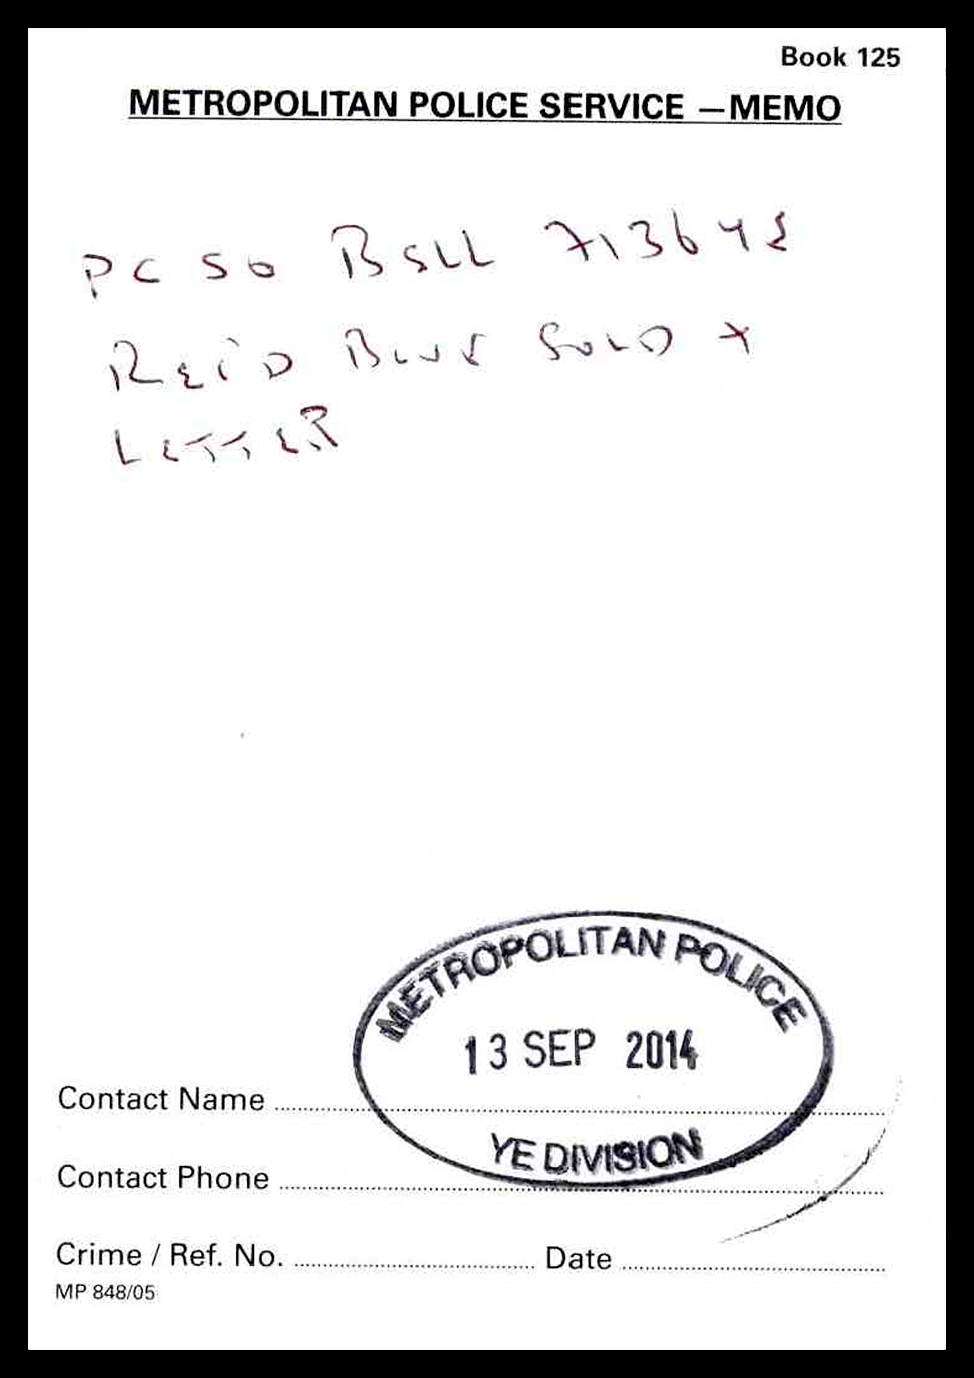 Book 125
METROPOLITAN POLICE SERVICE — MEMO
PCSO BELL 7136
REC'D BLUE +
LETTER
METROPOLITAN POLICE
13 SEP 2014
YE DIVISION
Contact Name
Contact Phone
Crime / Ref. No. Date
MP 848/05